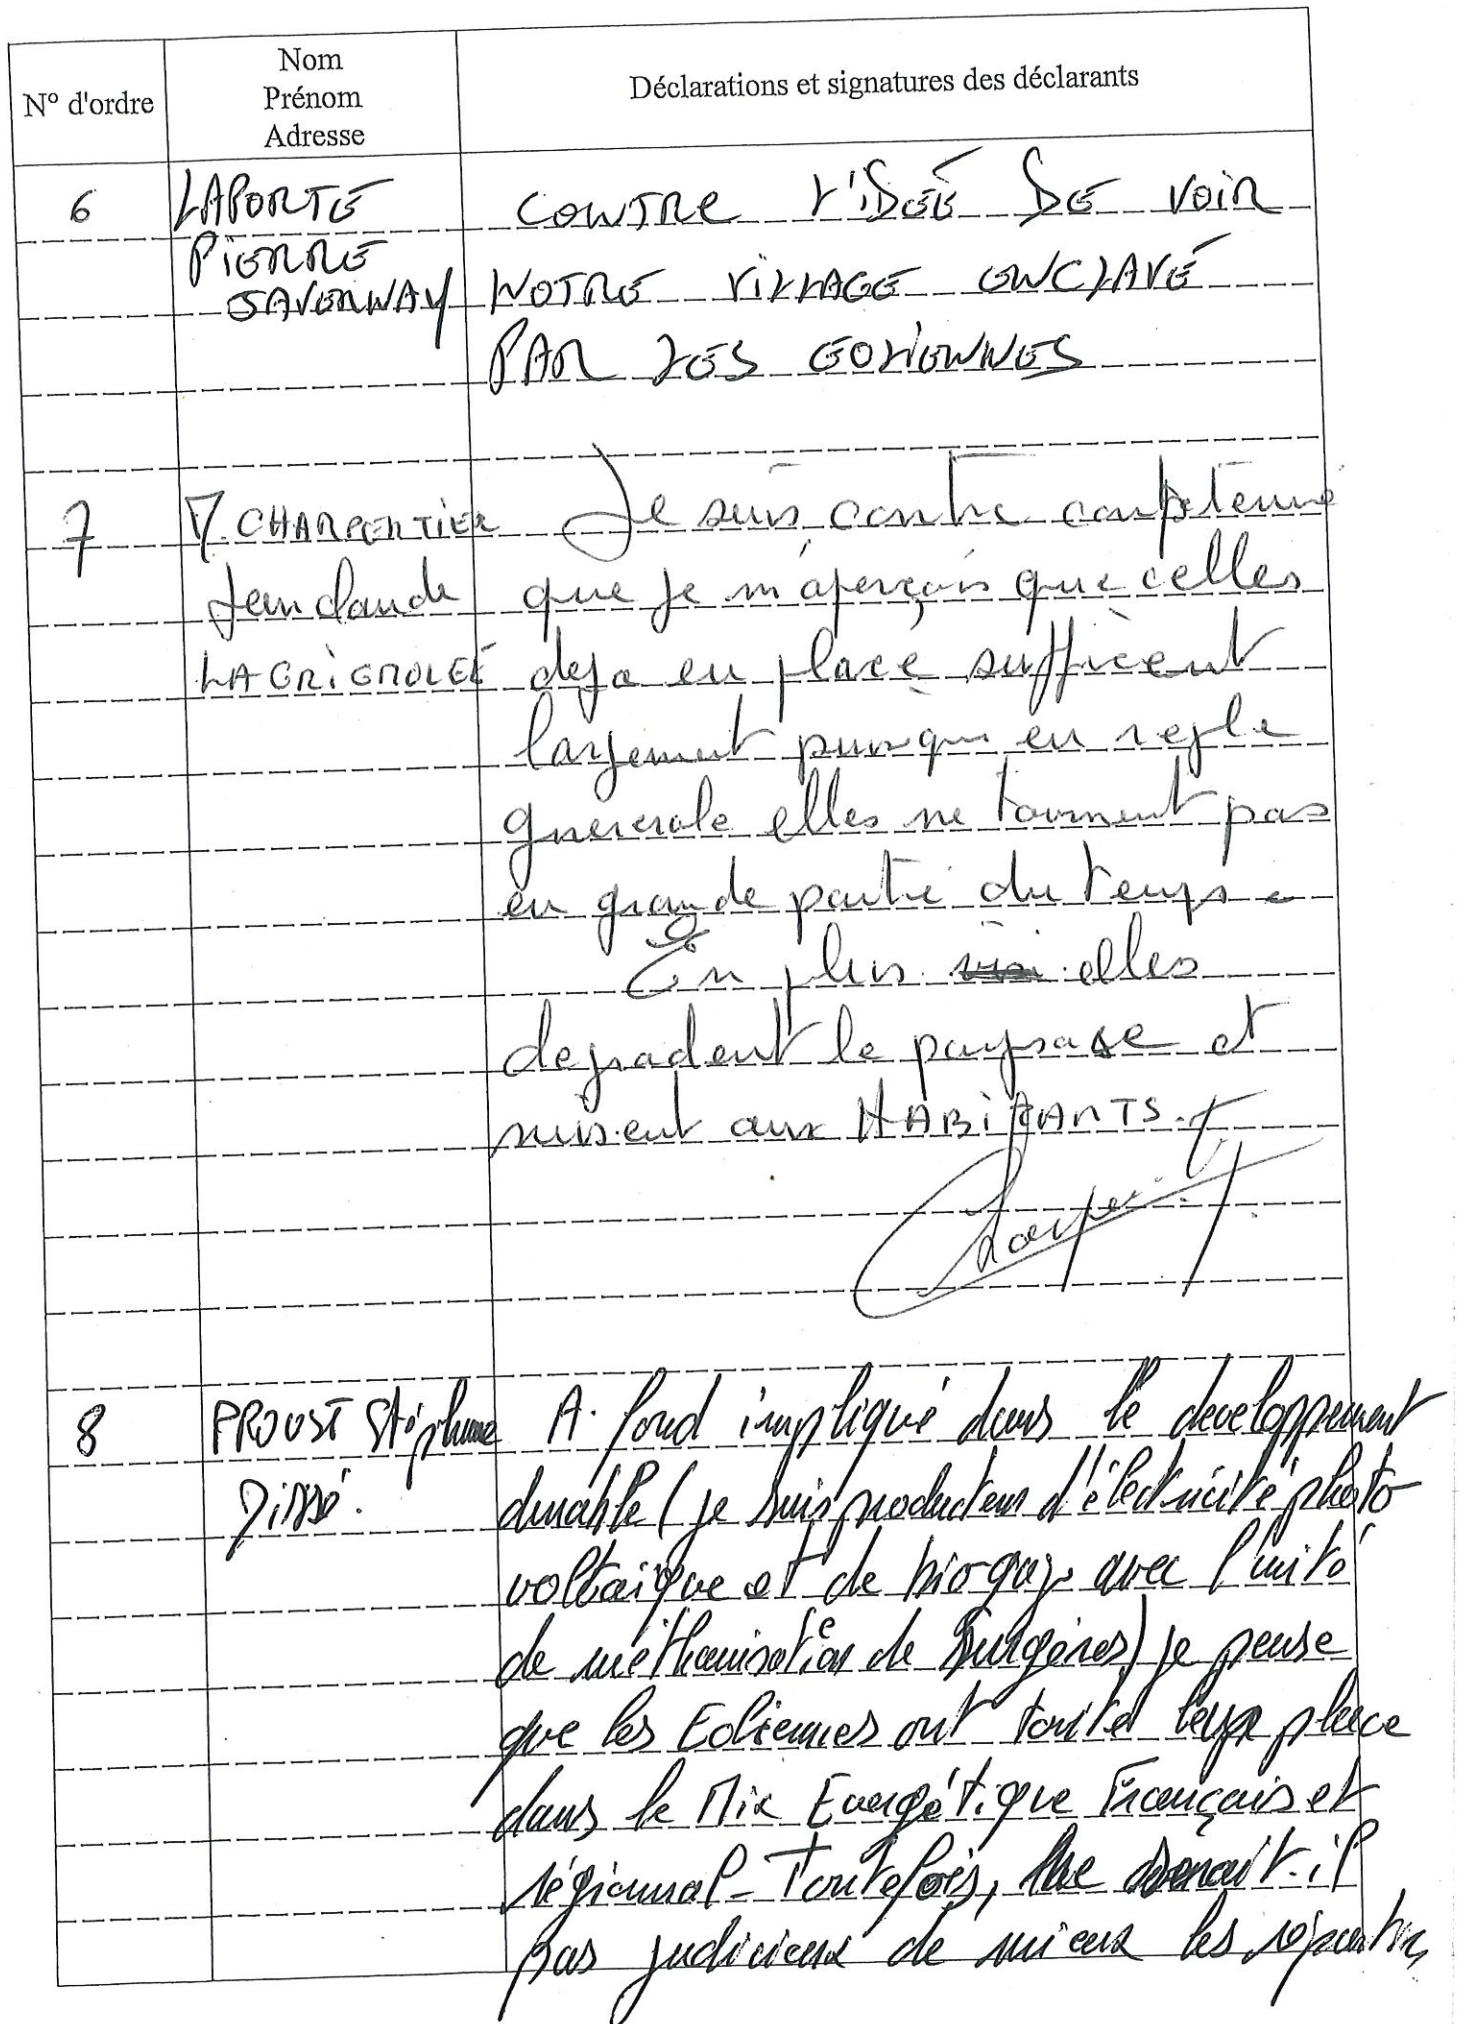 N° d'ordre
Nom
Prénom
Adresse
Déclarations et signatures des déclarants
6 LAPORTE CONTRE L'IDÉE DE VOIR
PIERRE
SAVERNAY NOTRE VILLAGE ENCLAVÉ
PAR LES EOLIENNES
7 M. CHARPENTIER Je suis contre compte tenu
Jean claude que je m'aperçois que celles
LA GRIGNOLEE deja en place suffisent
largement puisque en regle
generale elles ne tournent pas
en grande partie du temps
En plus elles
degradent le paysage et
nuisent aux HABITANTS.
8 PROUST Stéphane A fond impliqué dans le developpement
Dissé. durable (je suis producteur d'électricité photo
voltaïque et de biogaz avec l'unité
de méthanisation de Surgères) je pense
que les Eoliennes ont toute leur place
dans le Mix Energétique Français et
régional - Toutefois, ne serait-il
pas judicieux de mieux les répartir,